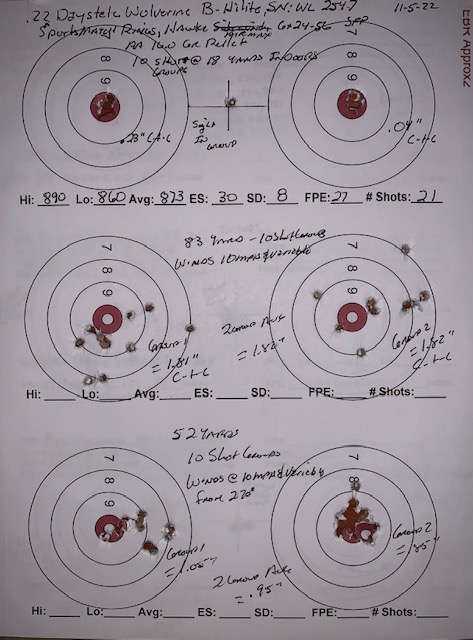 .22 Daystate Wolverine B-Hilite, SN: WL 2547 11-5-22
Sportsmatch Rings, Hawke Airmax 6x24-56 SFP
AA 16.0 Gr Pellet
10 Shots @ 18 Yards Indoors
Groups
EER Approx 2
8
9
7
8
9
Sight
In
Group
.23" C-t-C
.04"
C-t-C
Hi: 890 Lo: 860 Avg: 873 ES: 30 SD: 8 FPE: 27 # Shots: 21
83 Yards - 10 Shot Groups
Winds 10mph & Variable
7
8
9
7
8
9
Group 1
= 1.81"
C-t-C
2 Group Ave
= 1.82"
Group 2
= 1.82"
C-t-C
Hi: Lo: Avg: ES: SD: FPE: # Shots:
52 Yards
10 Shot Groups
Winds @ 10mph & Variable
From 270°
7
8
9
7
8
Group 1
= 1.05"
2 Group Ave
= .95"
Group 2
= .85"
Hi: Lo: Avg: ES: SD: FPE: # Shots: